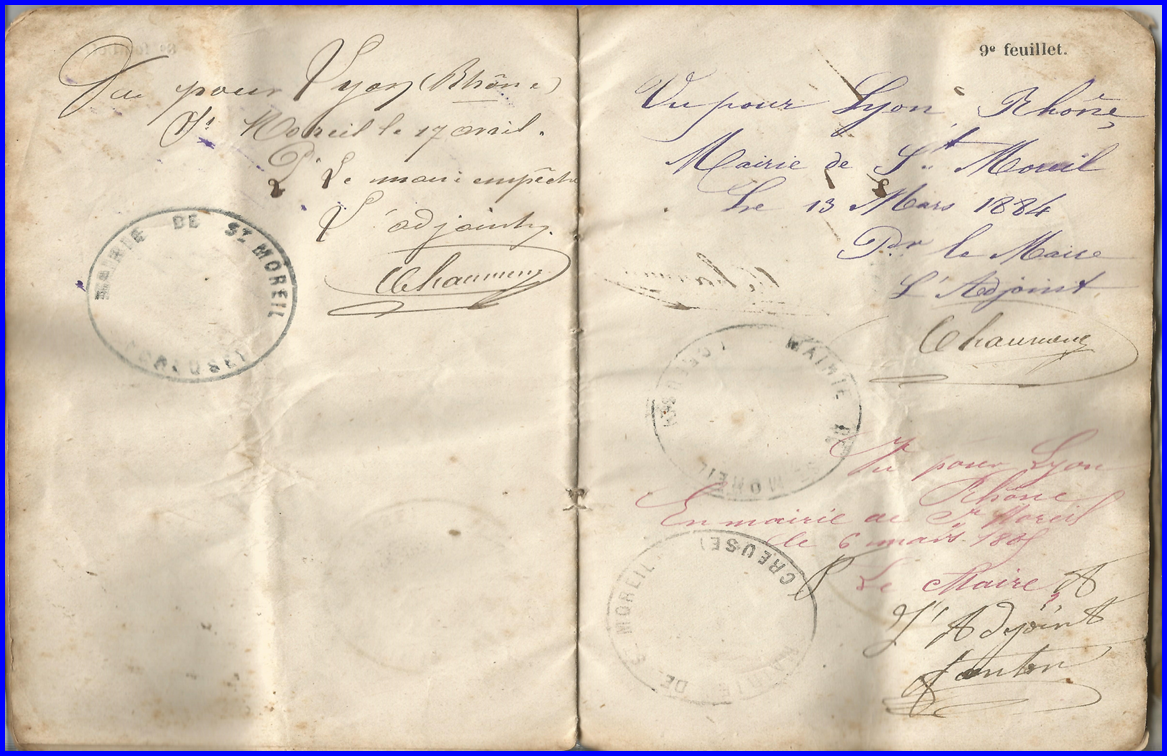 Vu pour Lyon (Rhône)
St Moreil le 17 avril.
Pr Le maire empêché
L'adjoint,
Chaumeny
MAIRIE DE ST MOREIL
(CREUSE)
9e feuillet.
Vu pour Lyon, Rhône,
Mairie de St Moreil
Le 13 Mars 1884
Pr le Maire
L'Adjoint
Chaumeny
MAIRIE DE ST MOREIL
(CREUSE)
Vu pour Lyon
Rhône
En mairie de St Moreil
le 6 mars
P Le Maire,
L'Adjoint
MAIRIE DE ST MOREIL
(CREUSE)